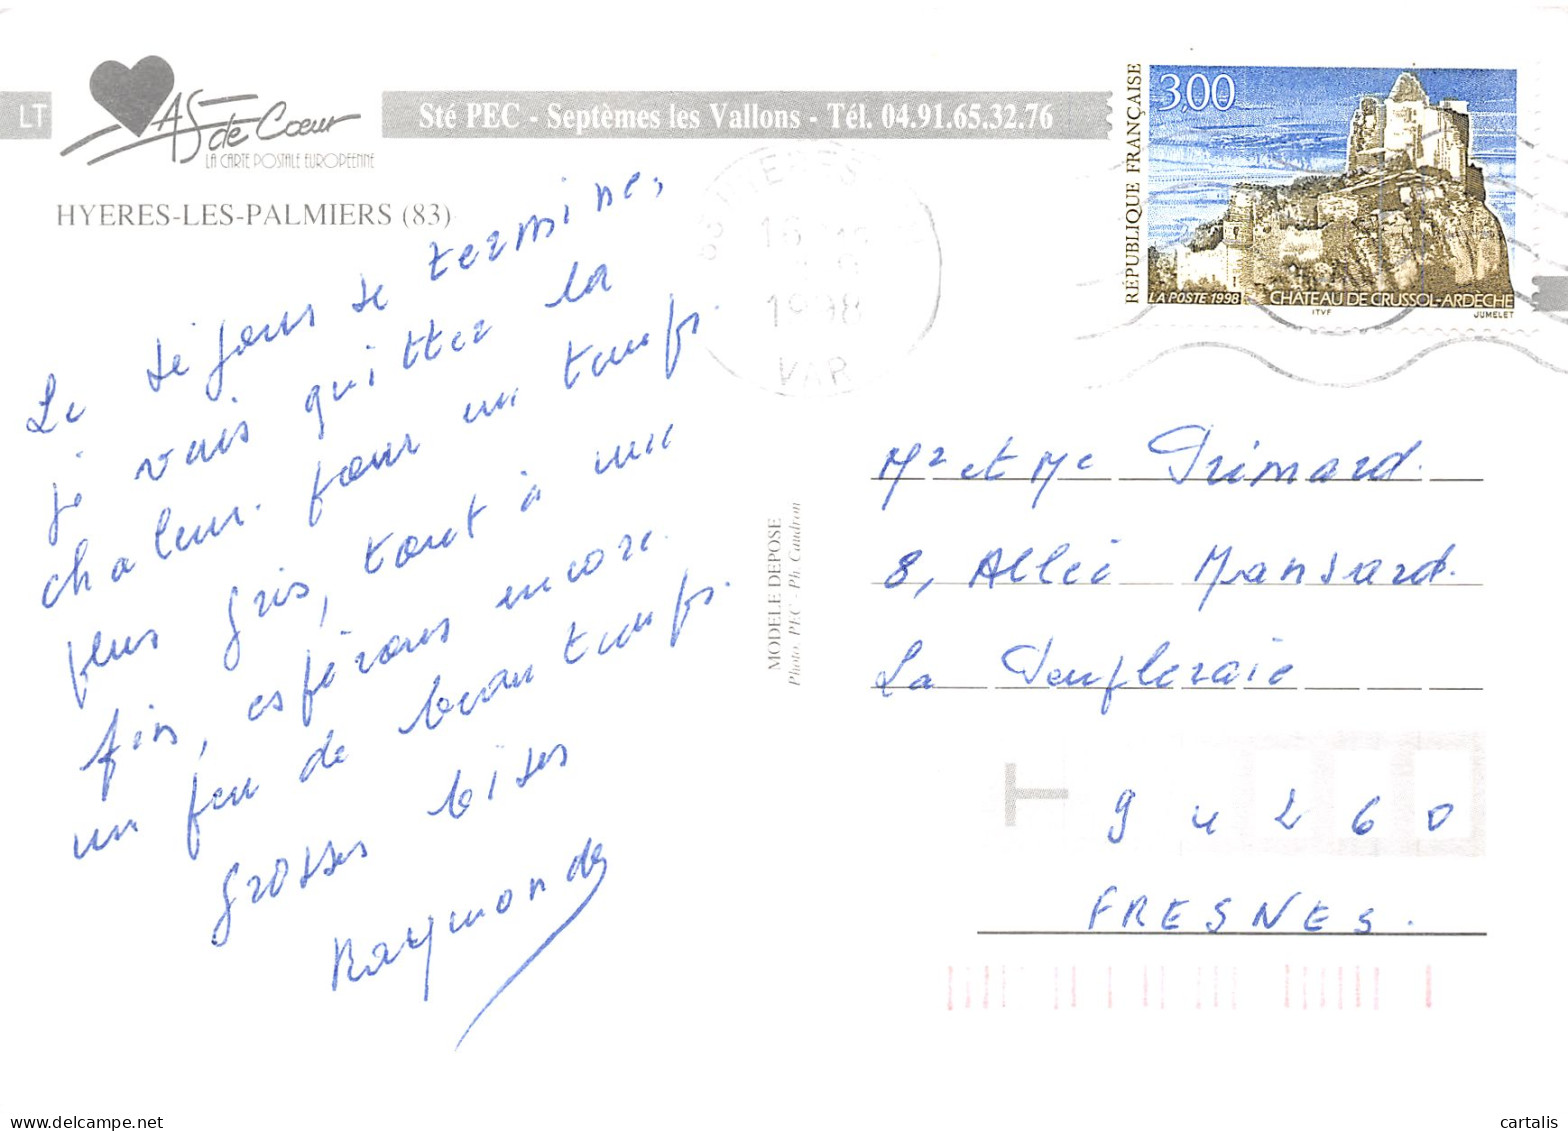 LT
AS de Cœur
LA CARTE POSTALE EUROPEENNE
Sté PEC - Septèmes les Vallons - Tél. 04.91.65.32.76
HYERES-LES-PALMIERS (83)
Le séjour se termine,
je vais quitter la
chaleur. pour un temps.
plus gris, tout à une
fin, espérons encore.
un peu de beau temps.
grosses bises
Raymonde
MODELE DEPOSE
Photo. PEC - Ph. Caudron
HYERES
18
1998
VAR
RÉPUBLIQUE FRANÇAISE
3,00
LA POSTE 1998
CHÂTEAU DE CRUSSOL-ARDÈCHE
ITVF
JUMELET
Mr et Me Primard.
8, Allée Mansard.
La Peupleraie
94260
FRESNES.
cartalis